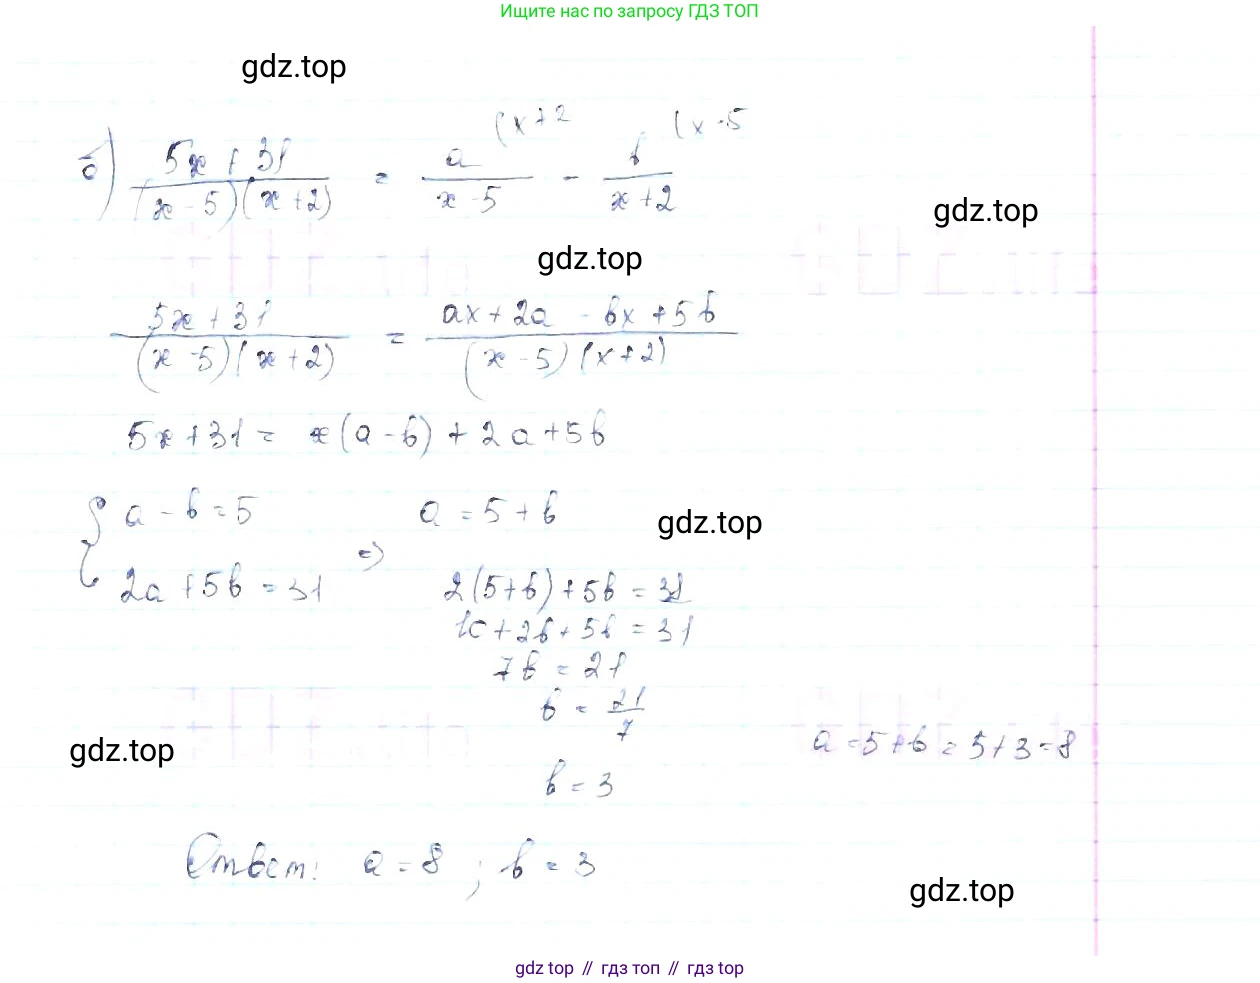 Ищите нас по запросу ГДЗ ТОП
gdz.top
(x+2 (x-5
б) 5x + 31 / (x-5)(x+2) = a / x-5 - b / x+2
gdz.top
gdz.top
5x+31 / (x-5)(x+2) = ax+2a-bx+5b / (x-5)(x+2)
5x+31 = x(a-b)+2a+5b
{ a-b=5 a=5+b
gdz.top
=>
2a+5b=31 2(5+b)+5b=31
10+2b+5b=31
7b=21
b = 21/7
a=5+b=5+3=8
gdz.top
b=3
Ответ: a=8; b=3
gdz.top
gdz top // гдз топ // gdz top